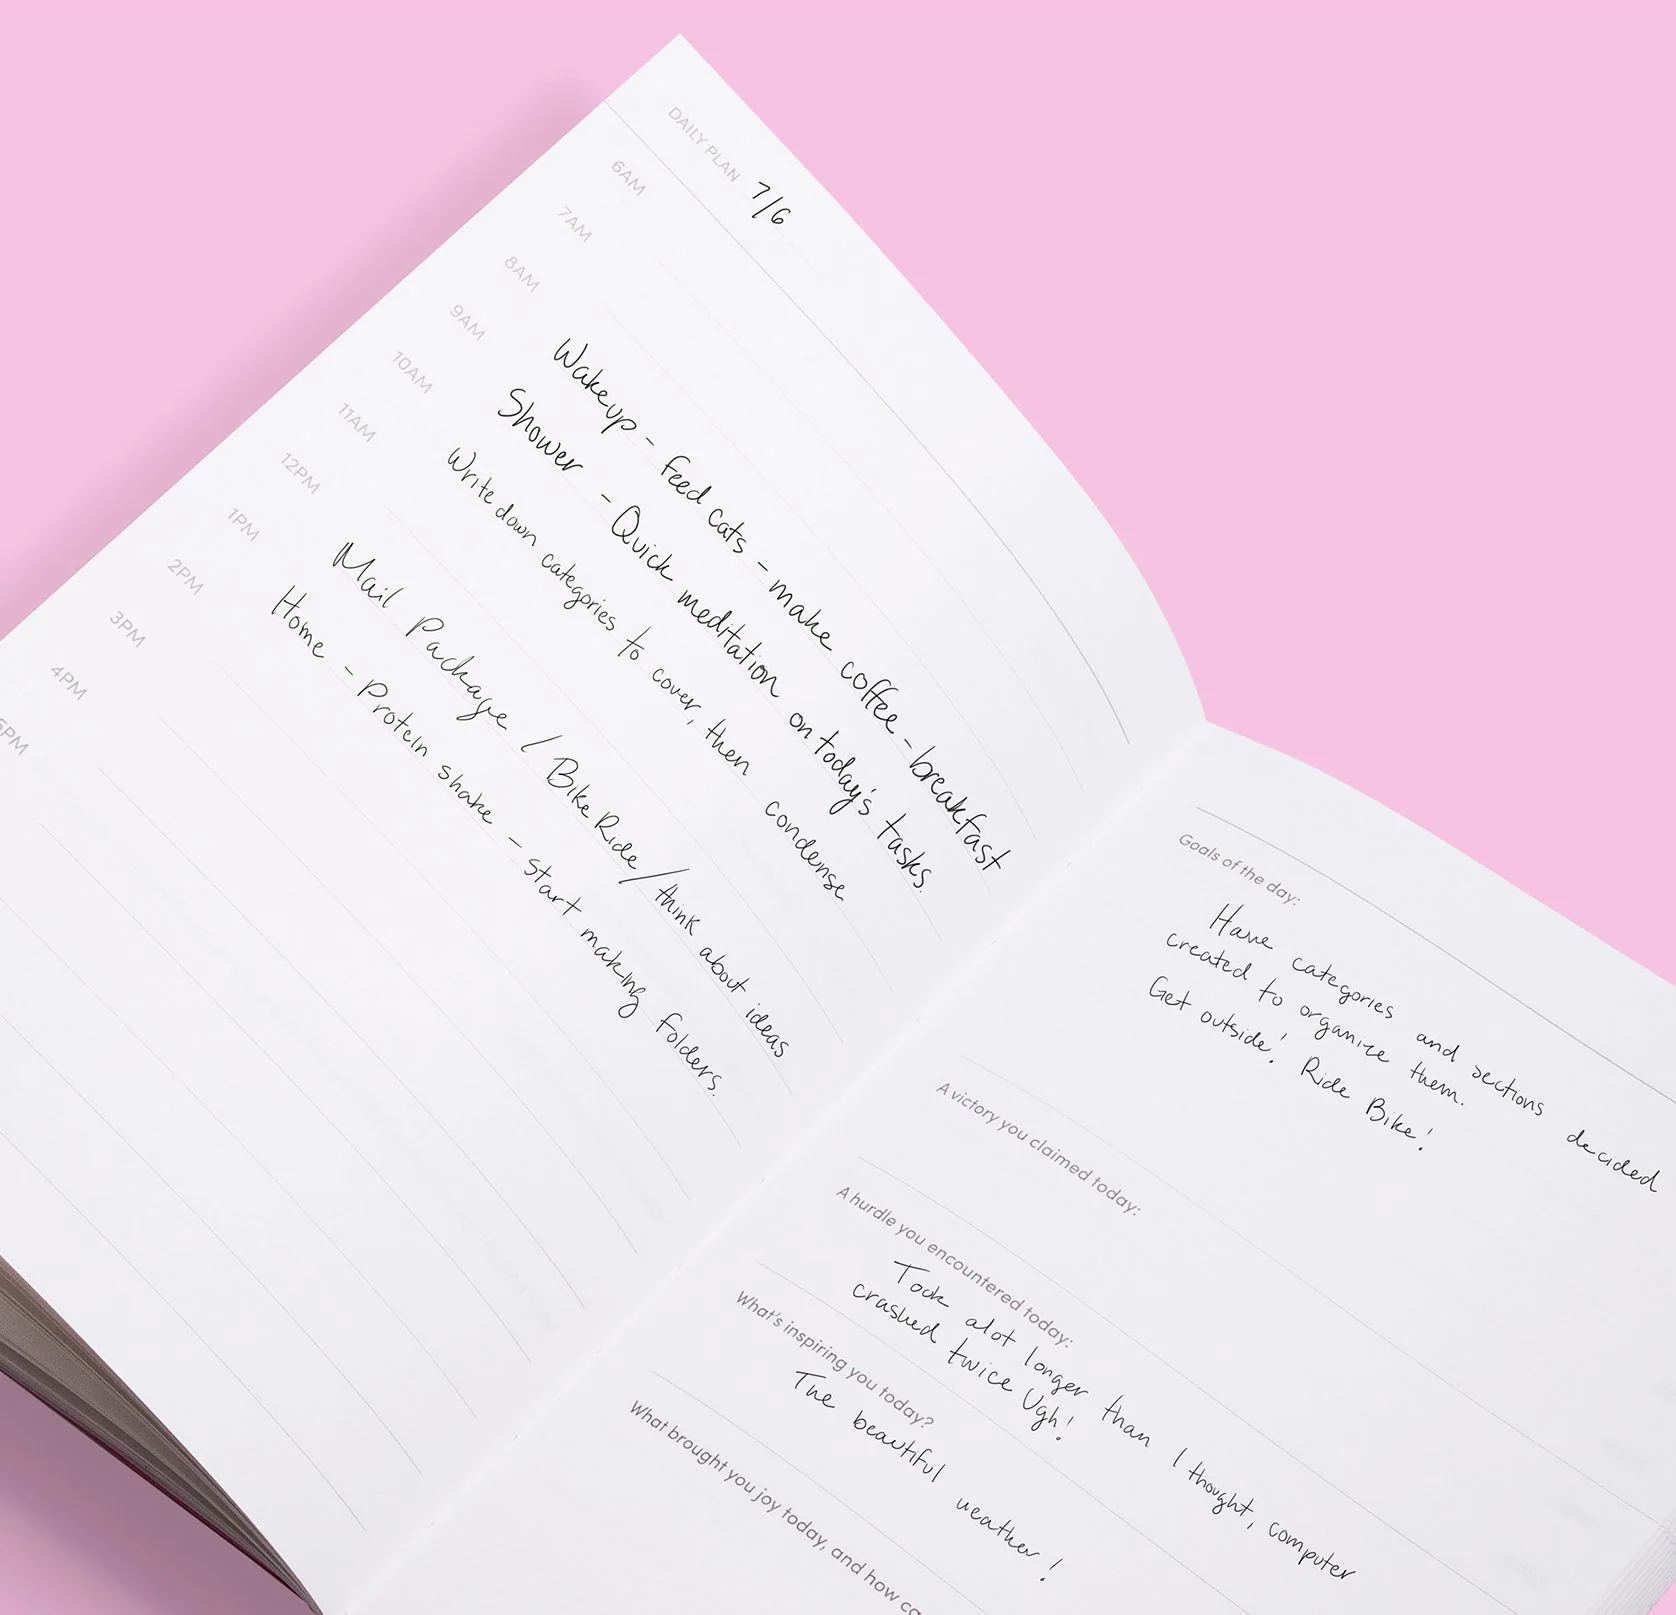 DAILY PLAN 7/6
6AM
7AM
8AM Wakeup - Feed cats - make coffee - breakfast
9AM Shower - Quick meditation on today's tasks.
10AM Write down categories to cover, then condense
11AM
12PM Mail Package / Bike Ride / think about ideas
1PM Home - Protein shake - start making folders.
2PM
3PM
4PM
5PM
Goals of the day:
Have categories and sections decided
created to organize them.
Get outside! Ride Bike!
A victory you claimed today:
A hurdle you encountered today:
Took alot longer than I thought, computer
crashed twice Ugh!
What's inspiring you today?
The beautiful weather!
What brought you joy today, and how